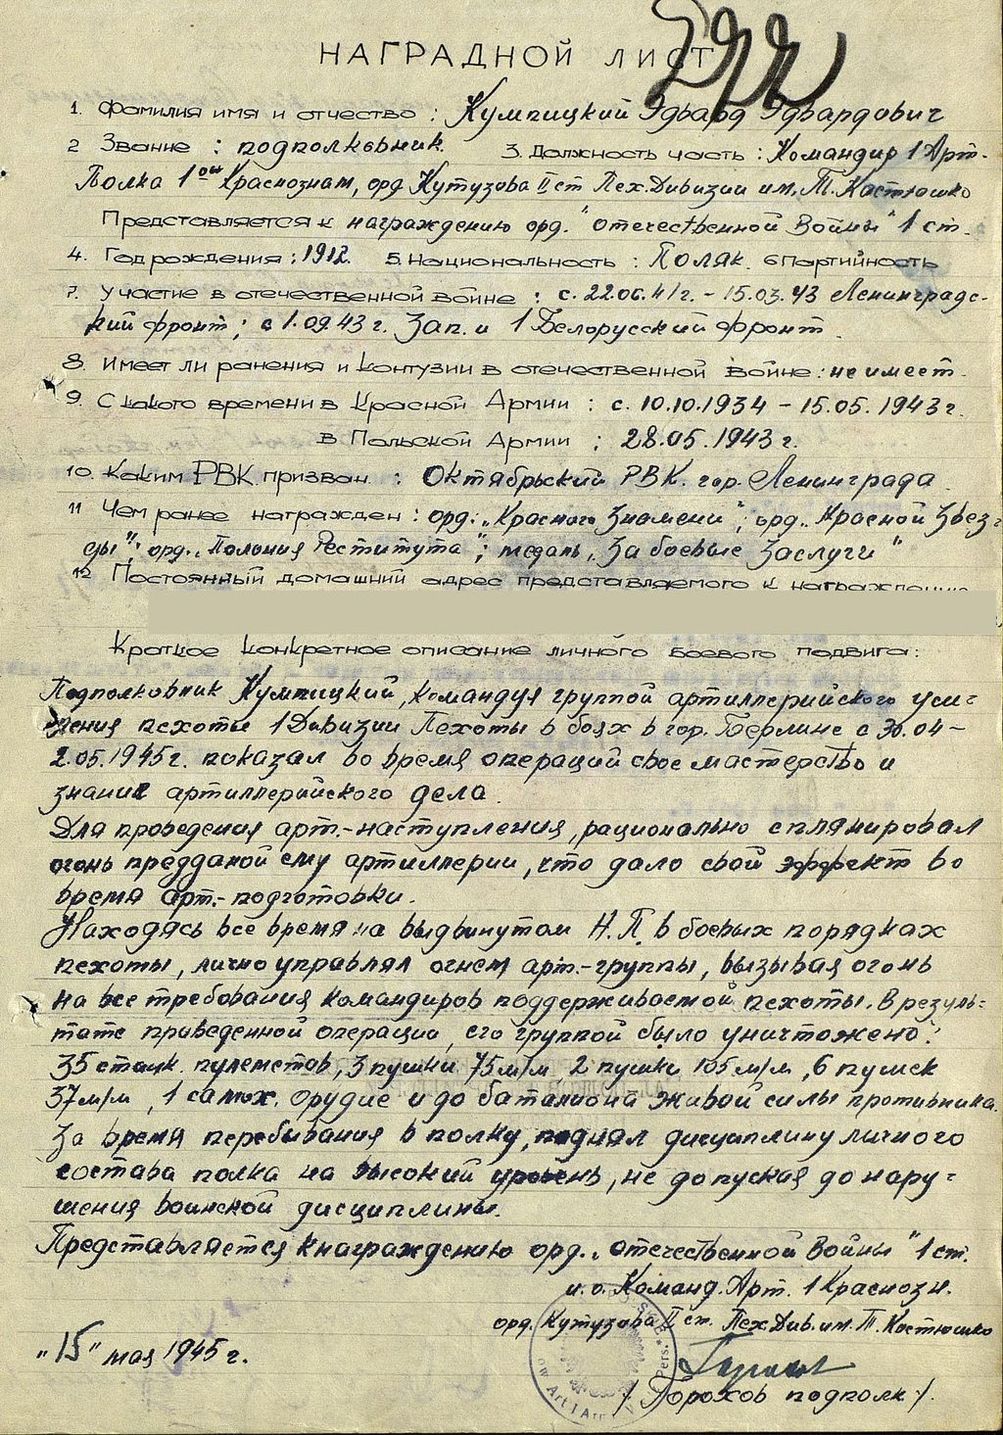 НАГРАДНОЙ ЛИСТ
1. Фамилия имя и отчество : Кумпицкий Эдвард Эдвардович
2 Звание : подполковник. 3. Должность часть : Командир 1 Арт.
Полка 1ой Краснознам, орд Кутузова II ст Пех. Дивизии им. Т. Костюшко
Представляется к награждению орд. "Отечественной Войны" 1 ст.
4. Год рождения : 1912. 5. Национальность : Поляк. 6 Партийность
7. Участие в отечественной войне : с. 22.06.41 г. - 15.03.43 Ленинградс-
кий фронт ; с 1.09.43 г. Зап. и 1 Белорусский фронт.
8. Имеет ли ранения и контузии в отечественной войне : не имеет.
9. С какого времени в Красной Армии : с. 10.10.1934 - 15.05.1943 г.
в Польской Армии ; 28.05.1943 г.
10. Каким РВК призван : Октябрьский РВК. гор. Ленинграда
11 Чем ранее награжден : орд. „Красного Знамени"; орд. „Красной Звез-
ды"; орд. „Полония Реститута"; медаль „За боевые Заслуги"
12 Постоянный домашний адрес представляемого к награждению
Краткое конкретное описание личного боевого подвига:
Подполковник Кумпицкий, командуя группой артиллерийского уси-
ления пехоты 1 Дивизии Пехоты в боях в гор. Берлине с 30.04 -
2.05.1945 г. показал во время операций свое мастерство и
знание артиллерийского дела.
Для проведения арт.-наступления, рационально спланировал
огонь предданой ему артиллерии, что дало свой эффект во
время арт.-подготовки.
Находясь все время на выдвинутом Н.П. в боевых порядках
пехоты, лично управлял огнем арт.-группы, вызывая огонь
на все требования командиров поддерживаемой пехоты. В резуль-
тате праведенной операции, его группой было уничтожено:
35 станк. пулеметов, 3 пушки 75 м/м 2 пушки 105 м/м, 6 пушек
37 м/м, 1 самох. орудие и до баталиона живой силы противника.
За время перебывания в полку, поднял дисциплину личного
состава полка на высокий уровень, не допуская до нару-
шения воинской дисциплины.
Представляется к награждению орд. „Отечественной Войны" 1 ст.
и.о. Команд. Арт. 1 Краснозн.
орд. Кутузова II ст. Пех. Див. им. Т. Костюшко
„15" мая 1945 г.
/ Горохов подполк /.